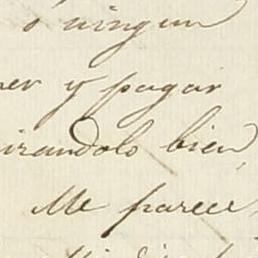 ó ningun
er y pagar
irandolo bien,
Me parece,